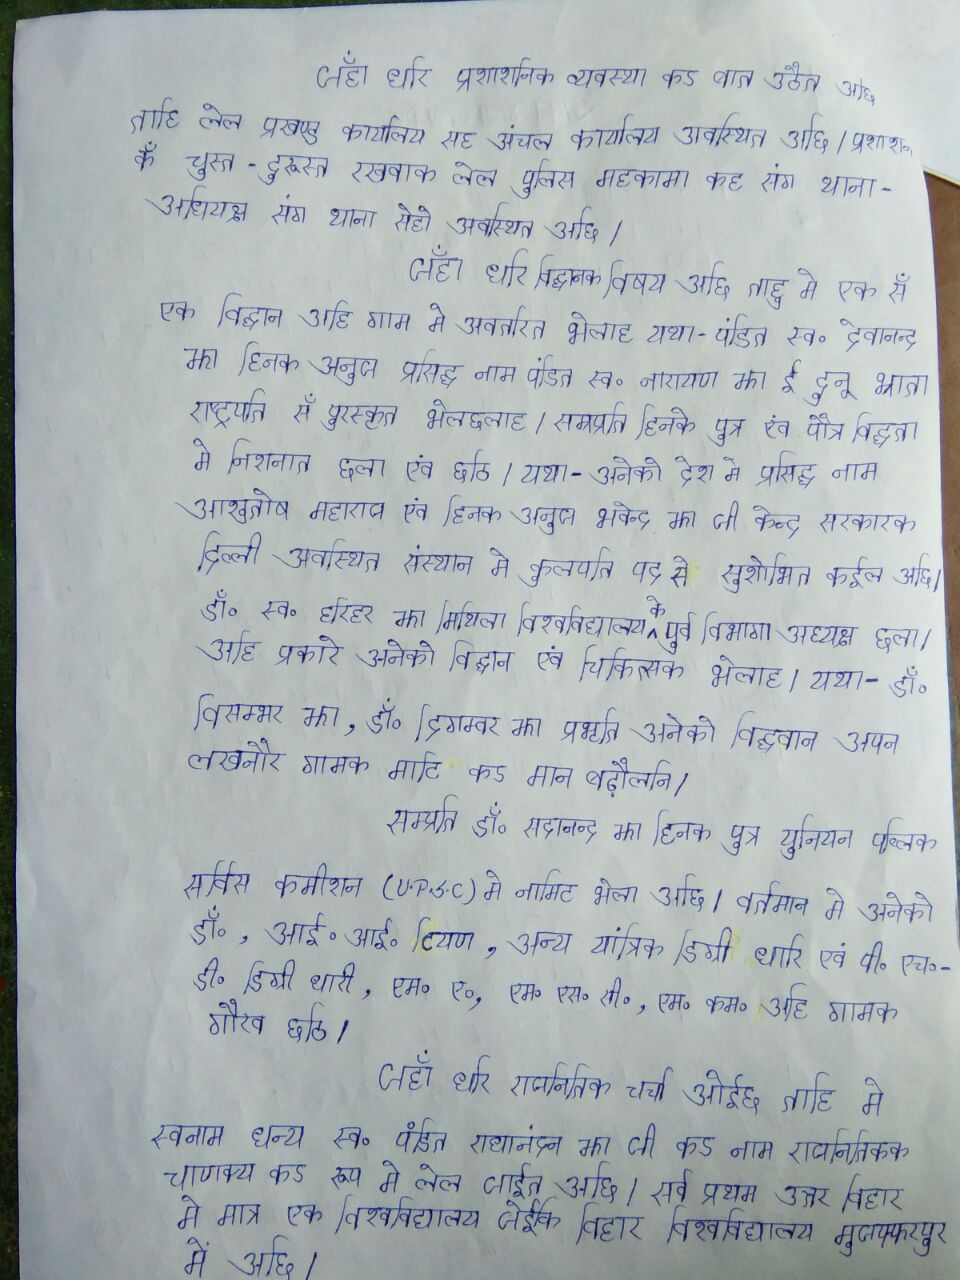 जहाँ धरि प्रशाशनिक व्यवस्था कऽ बात उठैत अछि
ताहि लेल प्रखण्ड कार्यालय सह अंचल कार्यालय अवस्थित अछि। प्रशाशन
कें चुस्त-दुरूस्त रखवाक लेल पुलिस महकामा कह संग थाना-
अधियक्ष संग थाना सेहो अवस्थित अछि।
जहाँ धरि विद्वानक विषय अछि ताहु मे एक सँ
एक विद्वान अहि गाम मे अवतरित भेलाह यथा-पंडित स्व० देवानन्द
झा हिनक अनुज प्रसिद्ध नाम पंडित स्व० नारायण झा ई दुनू भ्राता
राष्ट्रपति सँ पुरस्कृत भेलछलाह। सम्प्रति हिनके पुत्र एंव पौत्र विद्धता
मे निशनात छला एंव छथि। यथा-अनेको देश मे प्रसिद्ध नाम
आशुतोष महाराज एंव हिनक अनुज भवेन्द्र झा जी केन्द्र सरकारक
दिल्ली अवस्थित संस्थान मे कुलपति पद से सुशोभित कईल अछि।
डॉ० स्व० हरिहर झा मिथिला विश्वविद्यालय के पुर्व विभागा अध्यक्ष छला।
अहि प्रकारे अनेको विद्वान एवं चिकित्सक भेलाह। यथा-डॉ०
विसम्भर झा, डॉ० दिगम्वर झा प्रभृति अनेको विद्धवान अपन
लखनौर गामक माटि कऽ मान बढ़ौलनि।
सम्प्रति डॉ० सदानन्द झा हिनक पुत्र युनियन पब्लिक
सर्विस कमीशन (U.P.S.C) मे नामिट भेला अछि। वर्तमान मे अनेको
डॉ०, आई० आई० टियण, अन्य यांत्रिक डिग्री धारि एवं पी० एच०-
डी० डिग्री धारी, एम० ए०, एम० एस० सी०, एम० कम० अहि गामक
गौरव छथि।
जहाँ धरि राजनितिक चर्चा ओईछ ताहि मे
स्वनाम धन्य स्व० पंडित राधानंदन झा जी कऽ नाम राजनितिकक
चाणक्य कऽ रूप मे लेल जाईत अछि। सर्व प्रथम उत्तर विहार
मे मात्र एक विश्वविद्यालय जेईकि विहार विश्वविद्यालय मुजफ्फरपुर
में अछि।